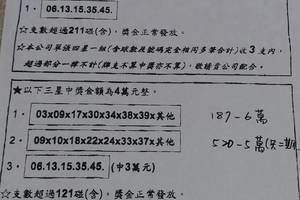 1． 06.13.15.35.45.
☆支數超過211碰(含)，獎金正常發放。
☆本公司單張四星一組(含球數及號碼完全相同多筆合計)收3支內，
超過部分一律不計(牌支不算中獎亦不算)，敬請貴公司配合。
★以下三星中獎金額為4萬元整。
1． 03x09x17x30x34x38x39x其他
187-6萬
2． 09x10x18x22x24x33x37x其他
520-5萬
3． 06.13.15.35.45. (中3萬元)
☆支數超過121碰(含)，獎金正常發放。